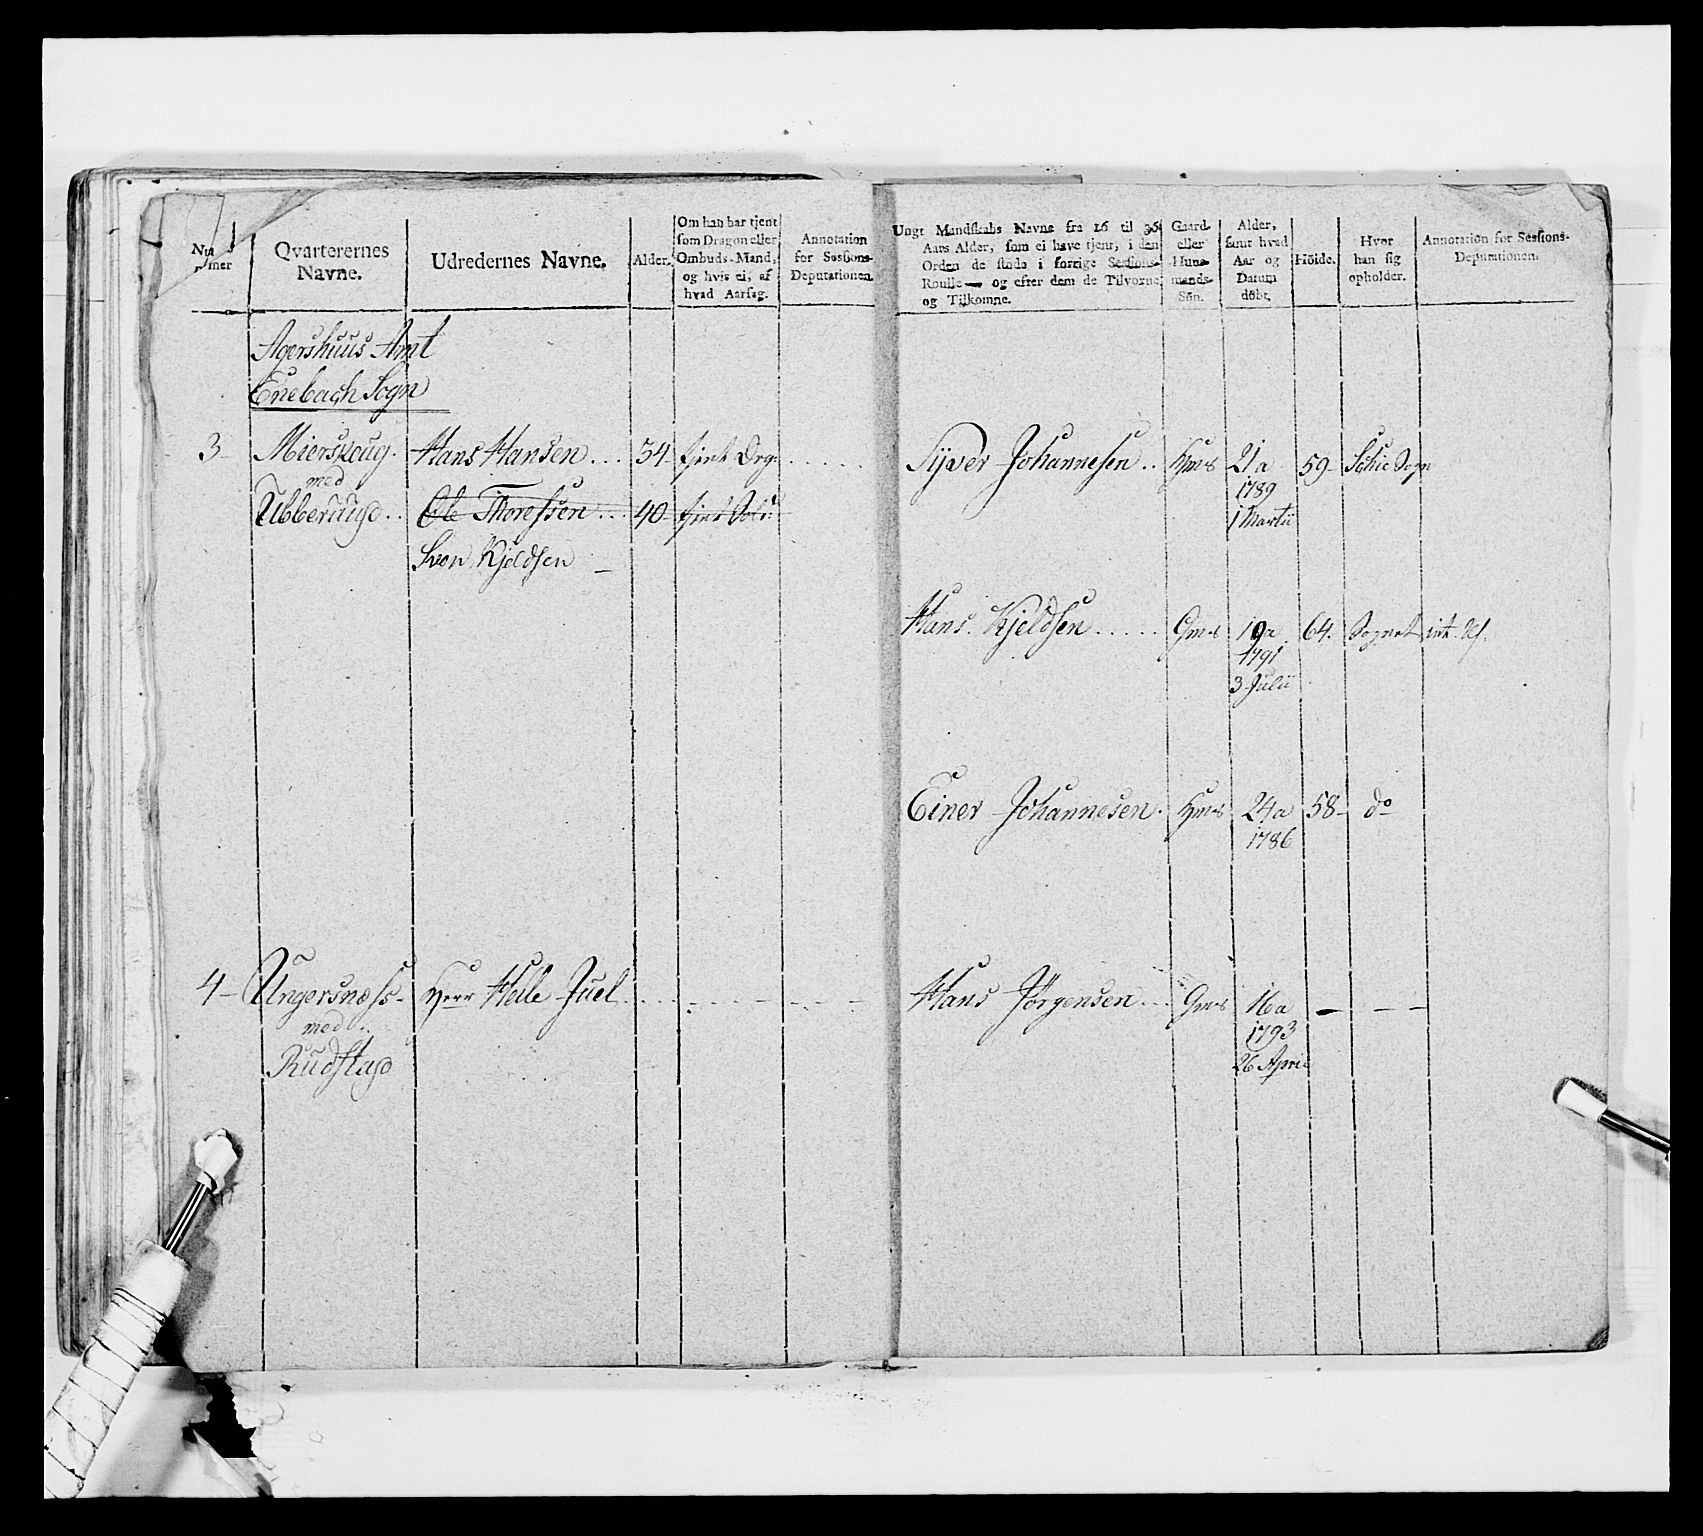 Nu-
mer
Qvarterernes
Navne.
Udredernes Navne.
Alder.
Om han har tjent
som Dragon eller
Ombuds-Mand,
og hvis ei, af
hvad Aarsag.
Annotation
for Sessions-
Deputationen.
Ungt Mandskabs Navne fra 16 til 36
Aars Alder, som ei have tjent, i den
Orden de stode i forrige Sessions-
Roulle — og efter dem de Tilvoxne
og Tilkomne.
Gaard-
eller
Huus-
mands-
Sön.
Alder,
samt hvad
Aar og
Datum
döbt.
Höide.
Hvor
han sig
opholder.
Annotation for Sessions-
Deputationen.
Agershuus Amt
Enebach Sogn
3- Mierskoug. Hans Hansen... 54- tjent Drg:
med
Ubberaugd.. Ole Thoressen... 40- tjent Sold:
Sven Kjeldsen —
Syver Johannesen.. Hms 21 a 59- Schie Sogn
1789
1 Martii
Hans Kjeldsen..... Gms 19 a 64. Sognet
1791
3 Julii
Einer Johannesen. Hms 24 a 58- do
1786
4- Ungersnæss- Herr Helle Juel.
med
Rudstad
Hans Jörgensen... Gms 16 a — — —
1793
26 April